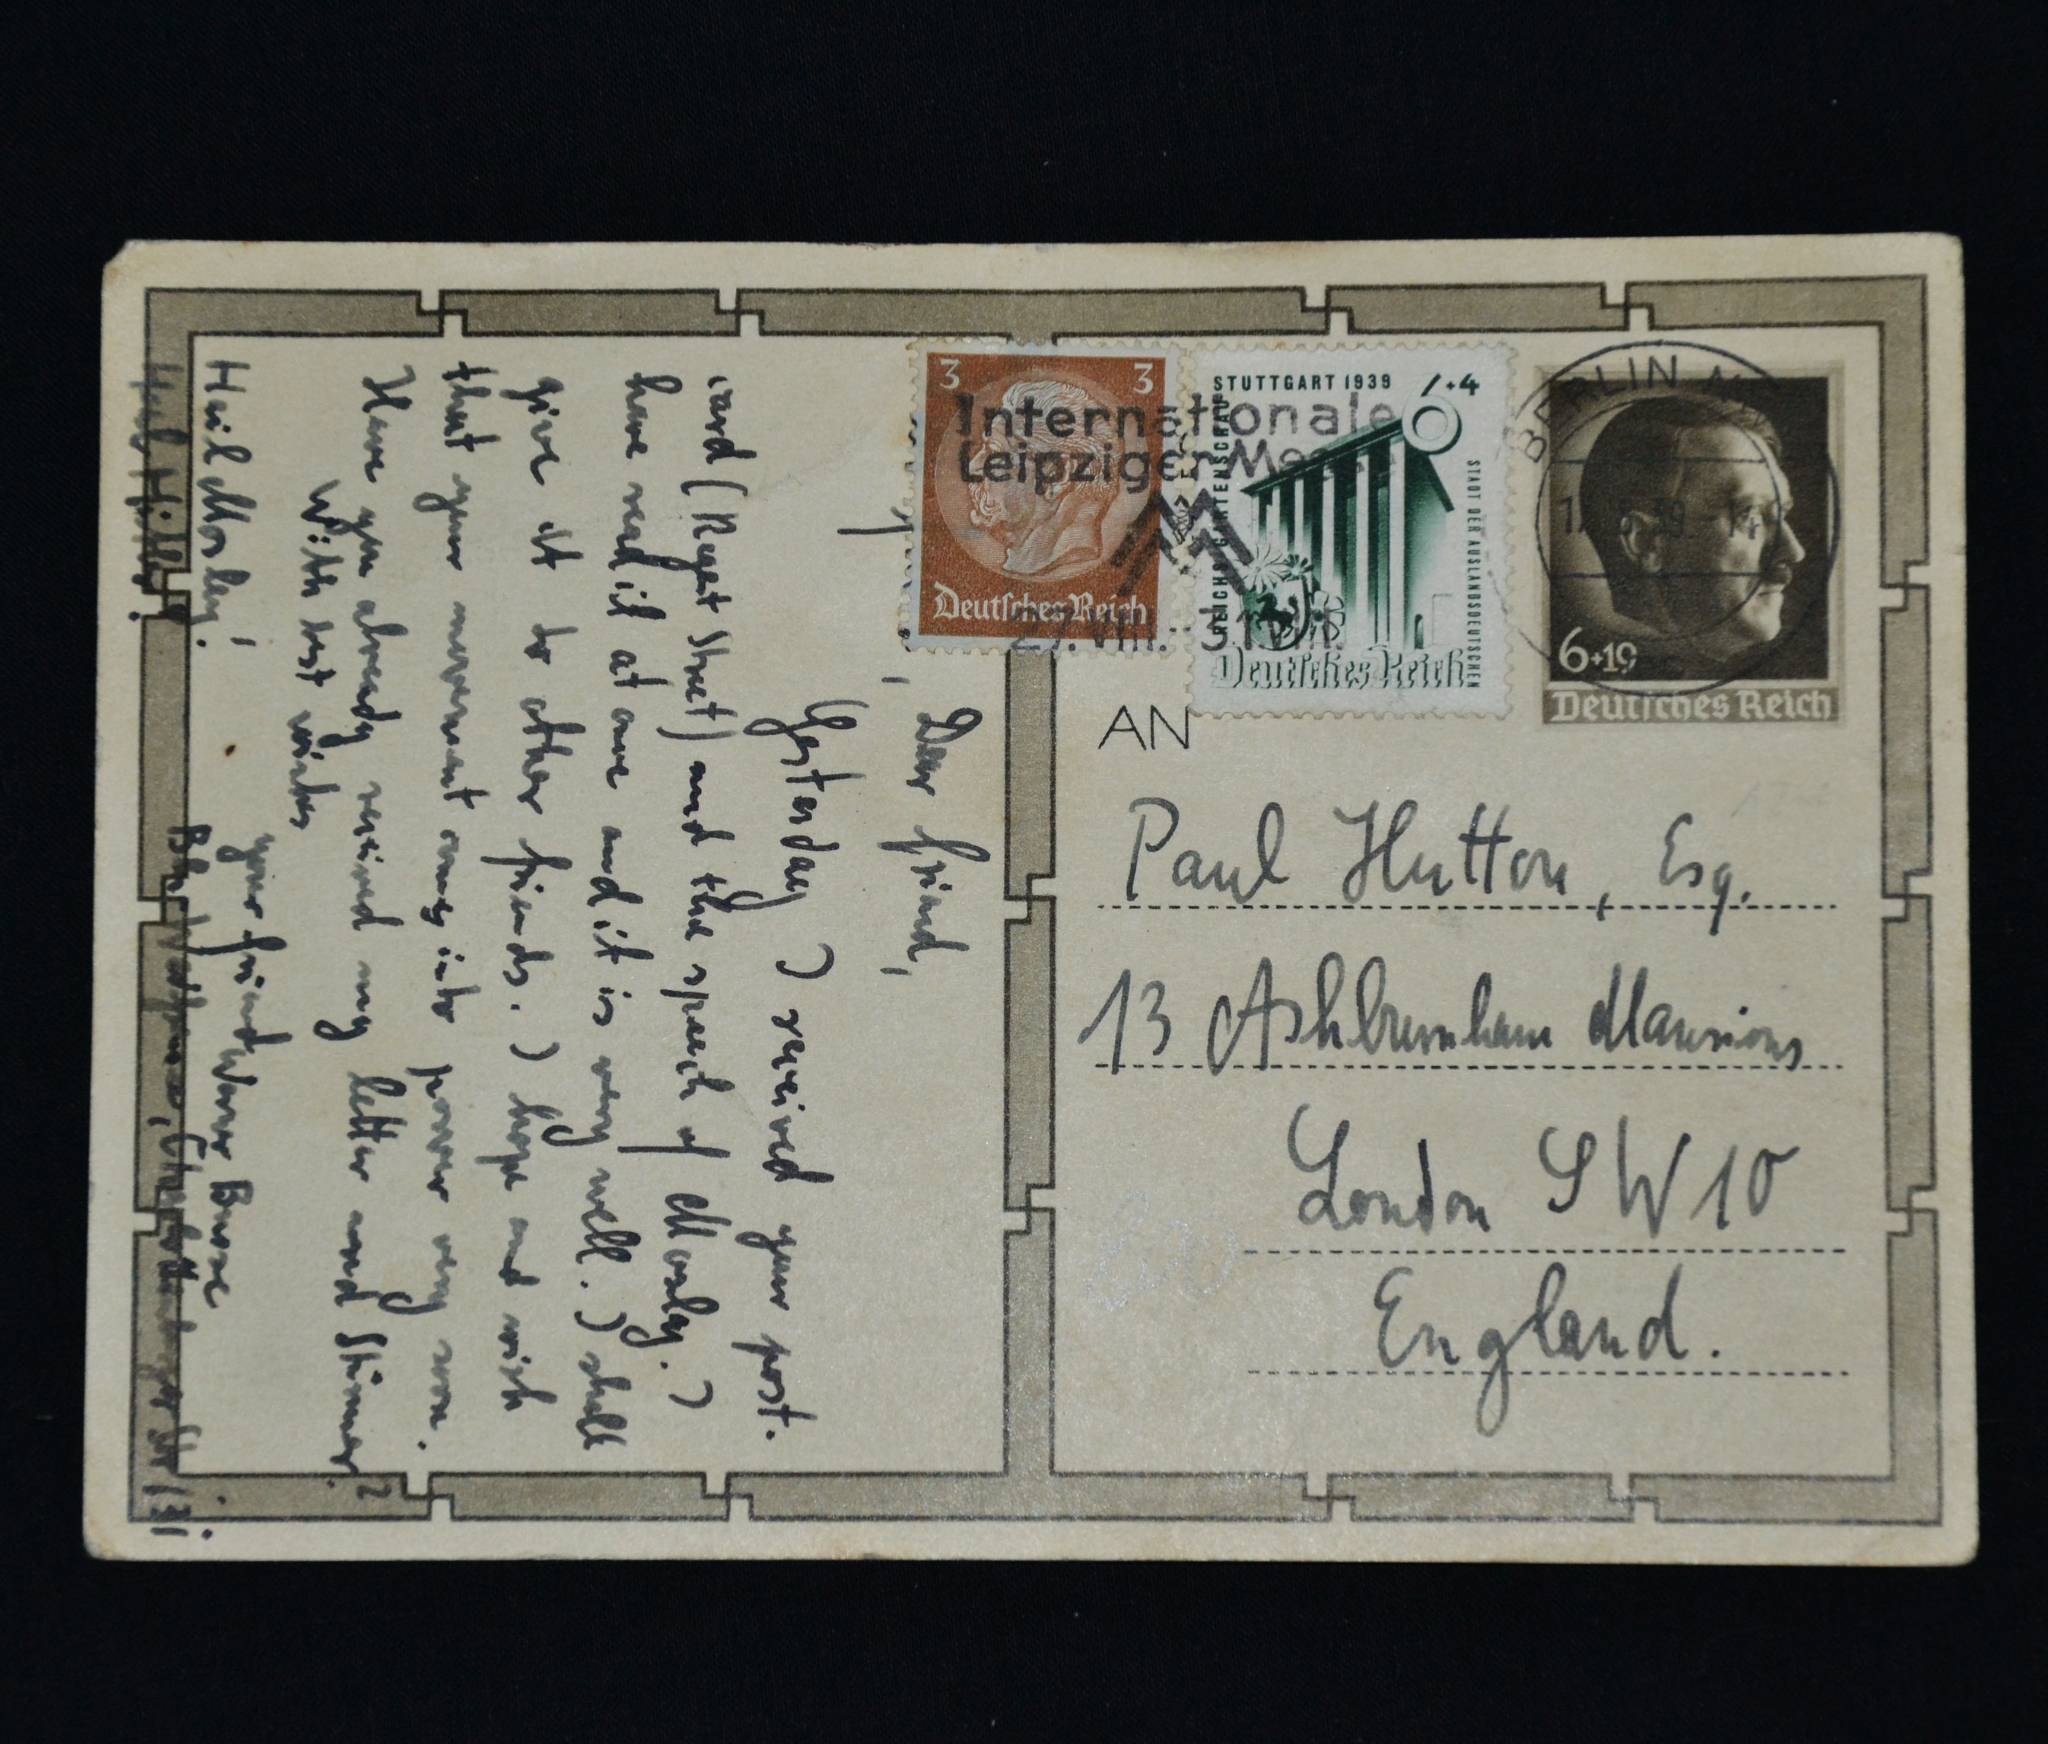 Dear friend,
Yesterday I received your post.
card (Regent Street) and the speech of Mosley. I
have read it at once and it is very well. I shall
give it to other friends. I hope and wish
that your movement comes into power very soon.
Have you already received my letter and Stürmer?
With best wishes
your friend Werner
Heil Mosley!
Heil Hitler!
Berlin
3
3
Deutsches Reich
STUTTGART 1939
6+4
REICHSGARTENSCHAU
STADT DER AUSLANDSDEUTSCHEN
Deutsches Reich
Internationale
Leipziger Messe
27.VIII.-31.VIII.
BERLIN
39.-14
6+19
Deutsches Reich
AN
Paul Hutton, Esq.
13 Ashburnham Mansions
London SW10
England.